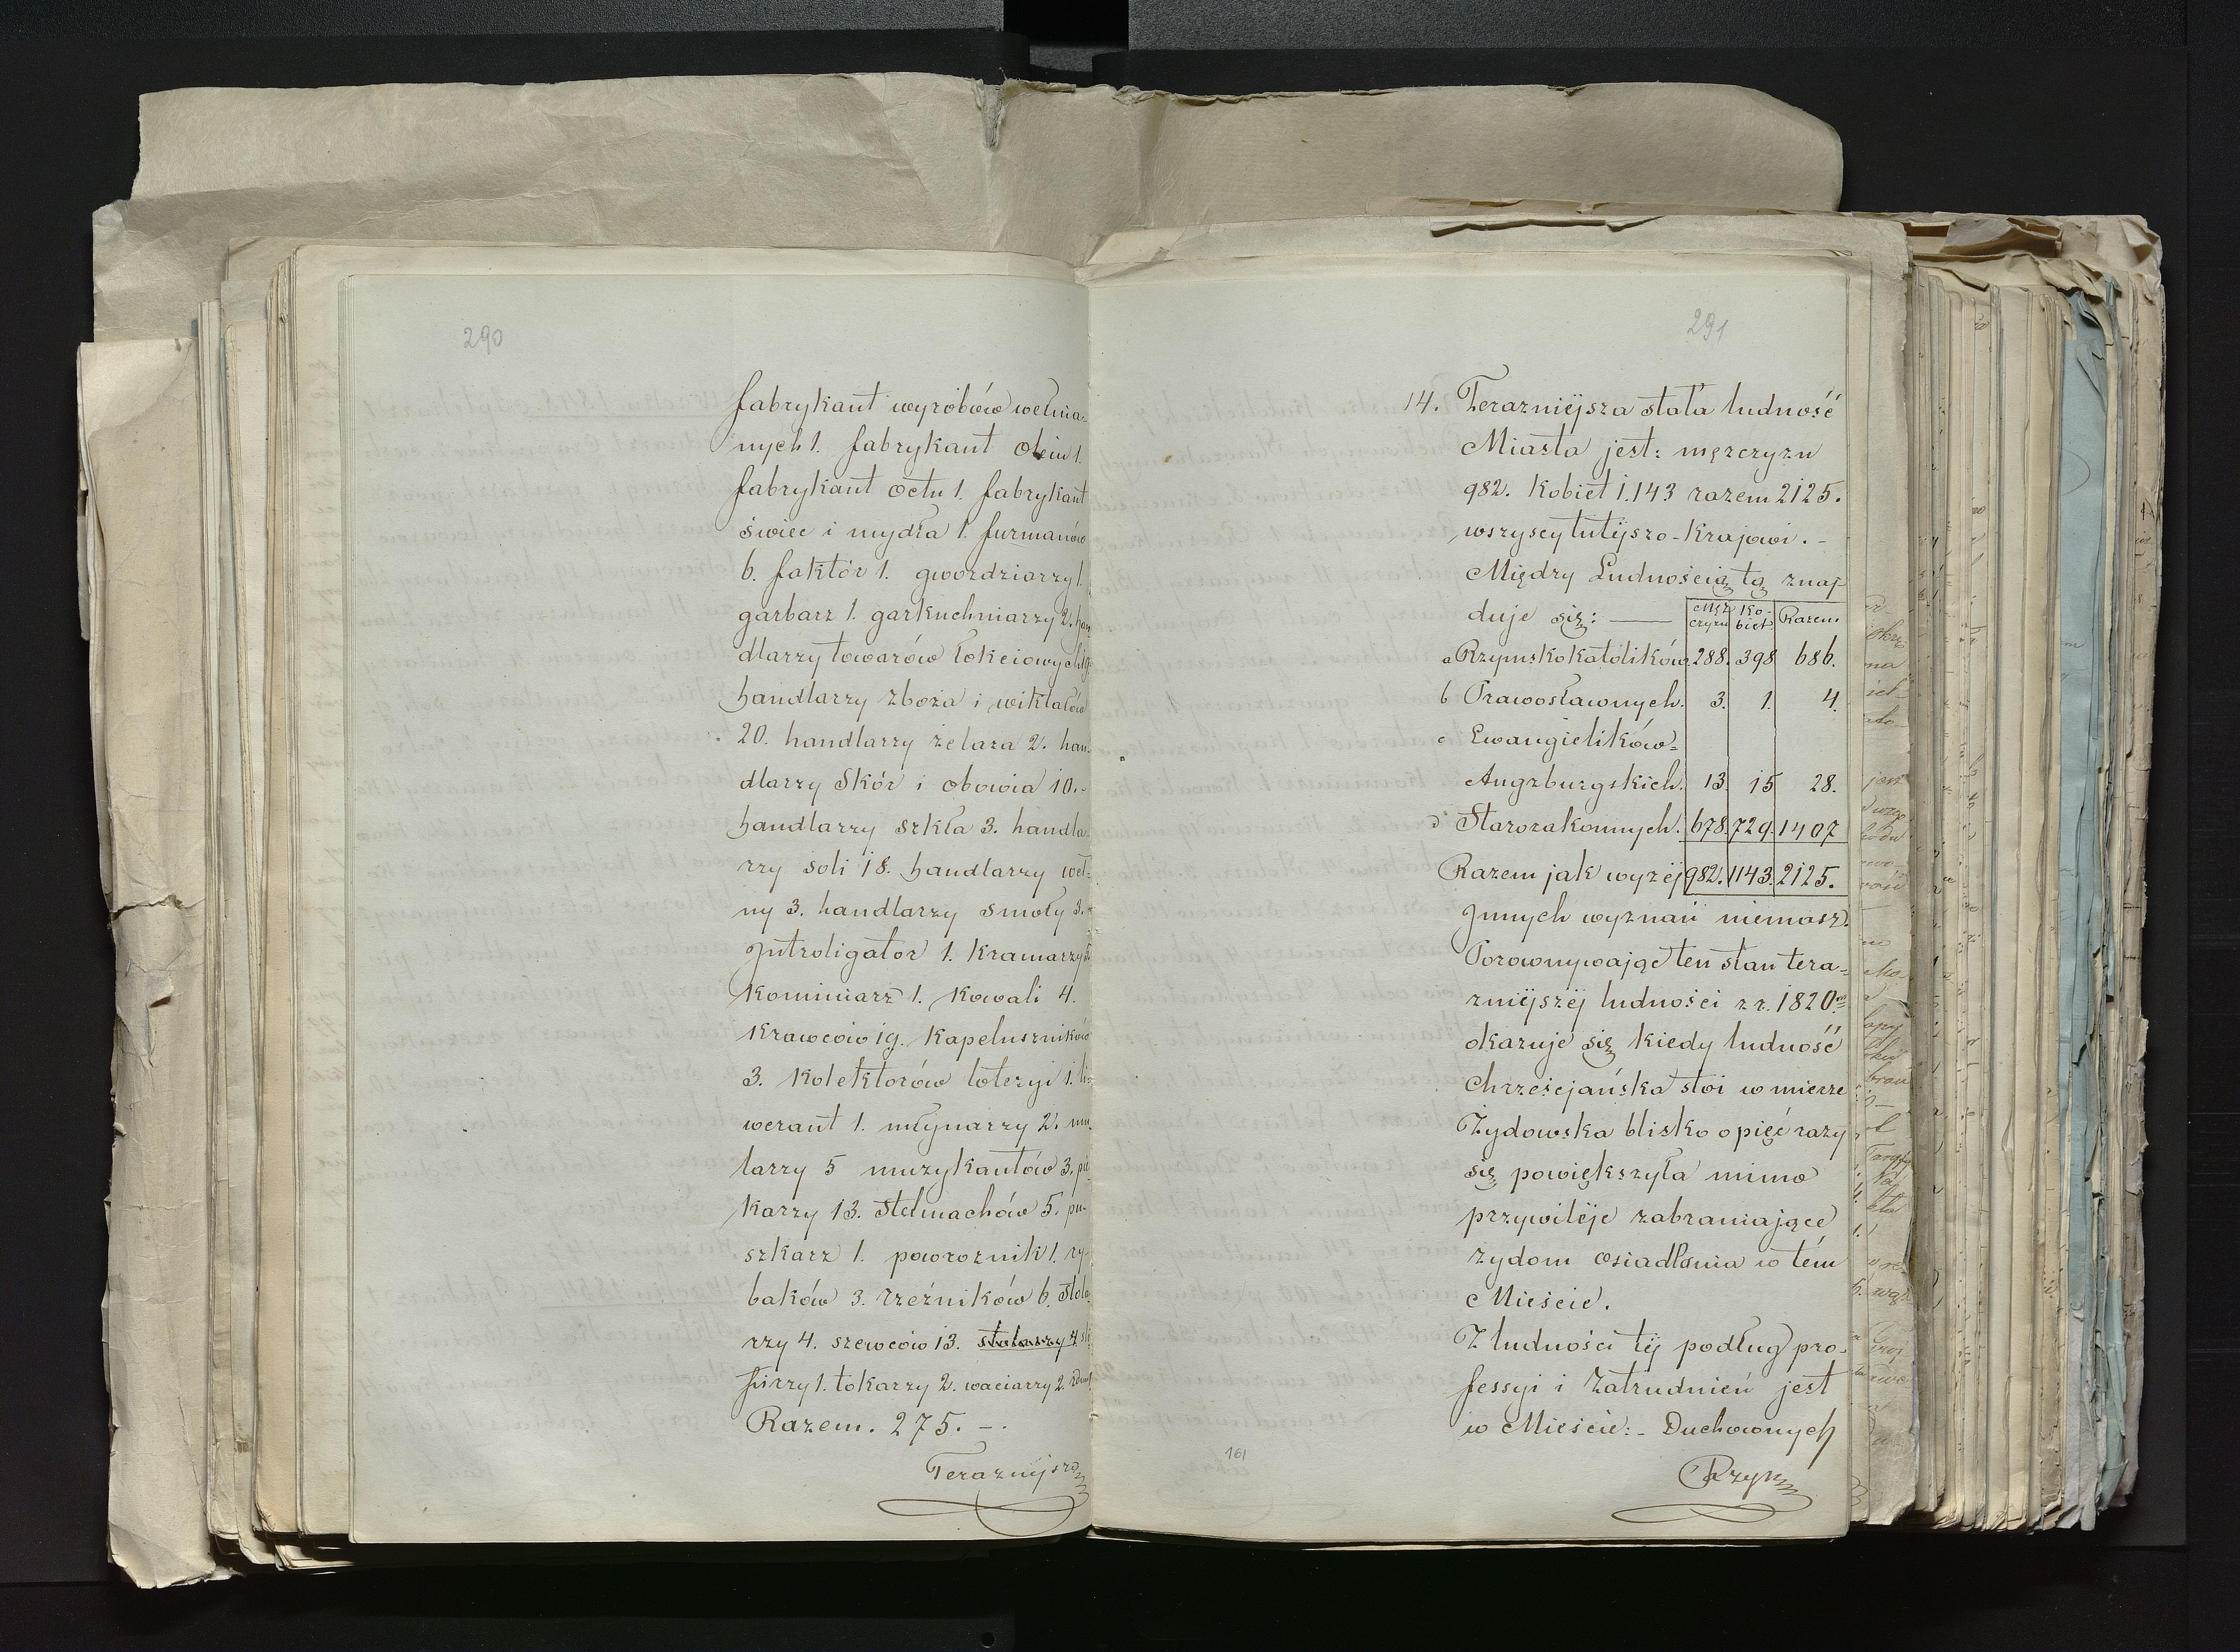 290
fabrykant wyrobów wełnia-
nych 1. fabrykant 1.
fabrykant octu 1. fabrykant
świec i mydła 1. furmanów
6. faktór 1. gwozdziarzy 1.
garbarz 1. garkuchniarzy 2. han
dlarzy towarów łokciowych
handlarzy zboża i wiktałów
20. handlarzy żelaza 2. han-
dlarzy Skór i obowia 10.-
handlarzy szkła 3. handla-
rzy soli 18. handlarzy weł-
ny 3. handlarzy smoły 3.
Jntroligator 1. Kramarzy
Kominiarz 1. Kowali 4.
Krawców 19. Kapeluszników
3. Kolektorów loteryi 1. li-
werant 1. młynarzy 2. mu-
larzy 5 muzykantów 3. pie
karzy 13. Stelmachów 5. pu-
szkarz 1. powroznik 1. ry-
baków 3. rzeźników 6. Stola
rzy 4. szewców 13. stolarzy 4
1. tokarzy 2. waciarzy 2.
Razem. 275. -.
Terazniejsza
291
14. Terazniejsza stała ludność
Miasta jest: mężczyzn
982. Kobiet 1.143 razem 2125.
wszyscy tutejszo-Krajowi. -
Między Ludnością tą znaj-
duje się: — Męż czyzn Ko- biet. Razem
a Rzymsko katolików 288. 398 686.
b Prawosławnych. 3. 1. 4.
c Ewangielików=
Augzburgskich. 13. 15 28.
d Starozakonnych. 678. 729. 1407
Razem jak wyżéj 982. 1143. 2125.
Jnnych wyznań niemasz.
Porownywając ten stan tera-
zniejszéj ludności z r. 1820m
okazuje się kiedy ludność
Chrześcjańska stoi w mierze
Żydowska blisko o pięć razy
się powiększyła mimo
przywiléje zabraniające
żydom osiadłania w tém
Mieście.
Z ludności téj podług pro-
fessyi i Zatrudnień jest
w Mieście:- Duchownych
Rzym
161